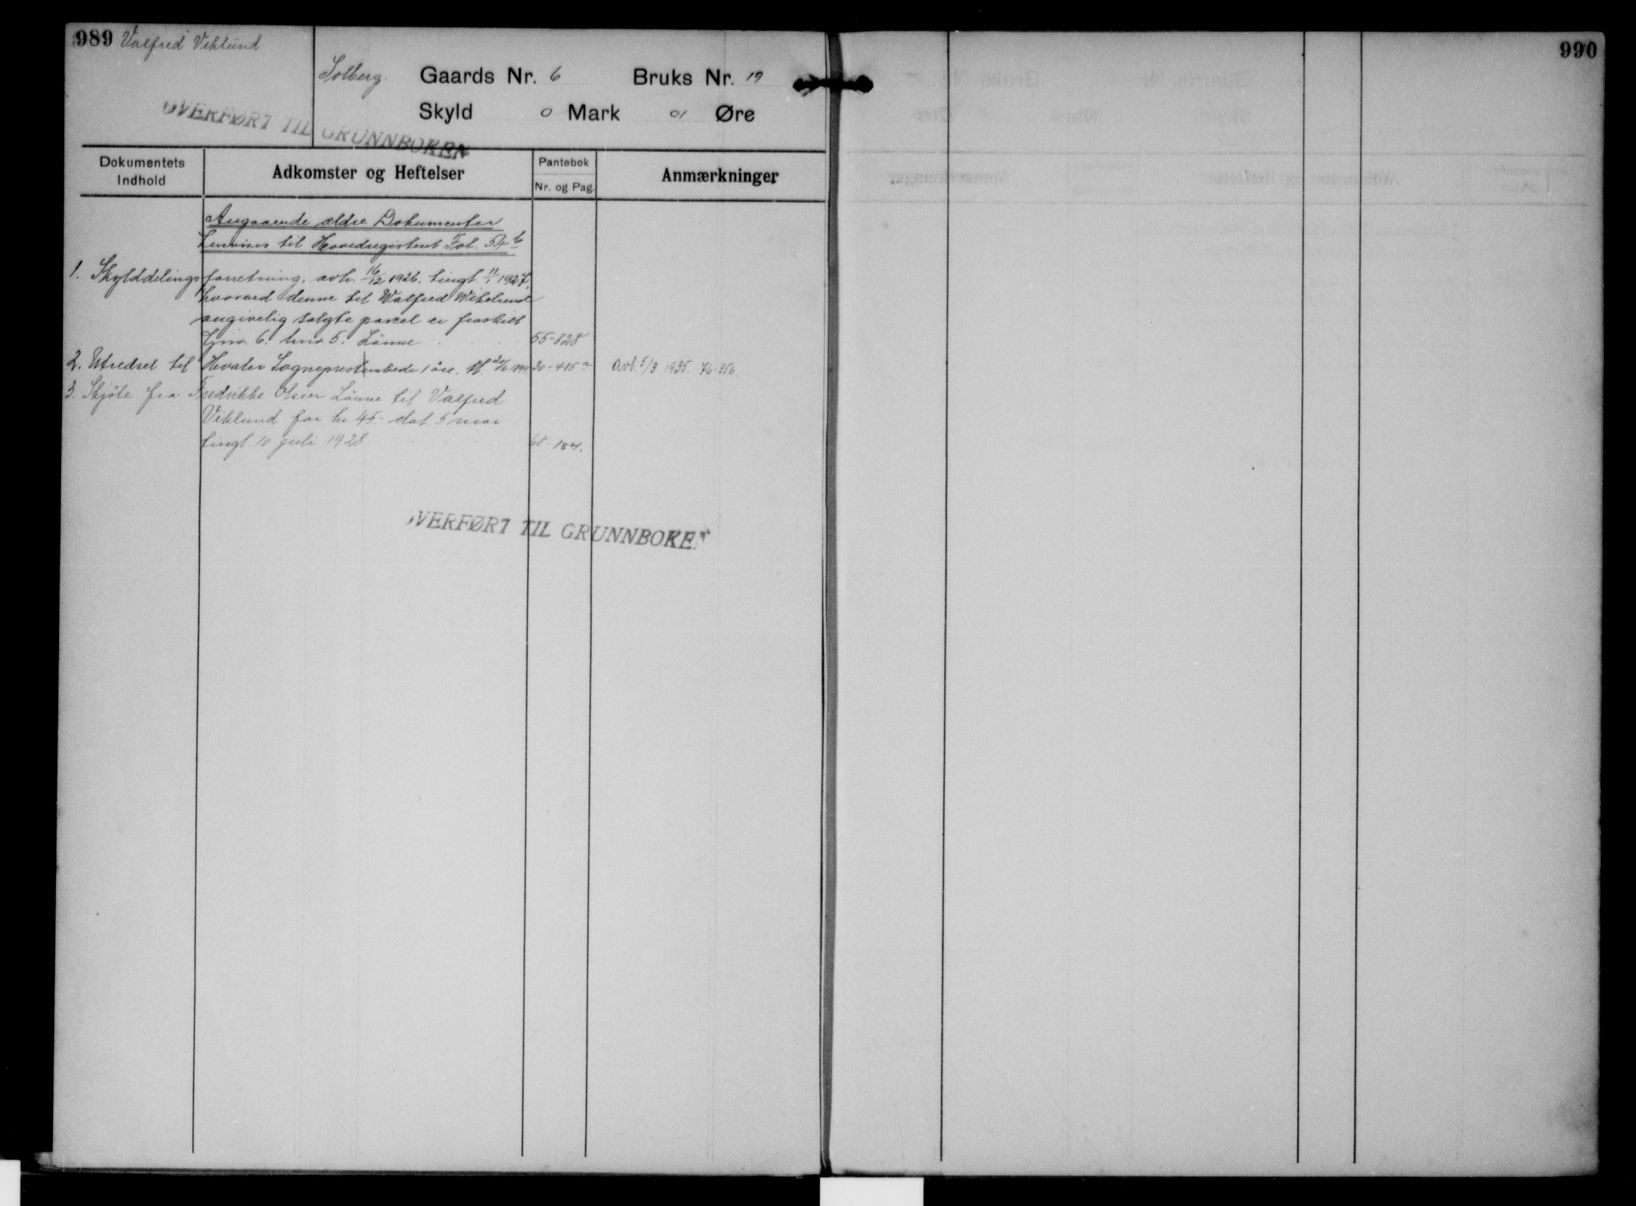 989 Valfred Viklund
990
Solberg. Gaards Nr. 6 Bruks Nr. 19
Skyld 0 Mark 01 Øre
OVERFØRT TIL GRUNNBOKEN
Dokumentets Indhold
Adkomster og Heftelser
Pantebok
Nr. og Pag.
Anmærkninger
Angaaende ældre Dokumenter
henvises til Hovedregisteret Fol. 54 b
1. Skylddelingsforretning, avh. 16/12 1926. tingl. 11/1 1927,
hvorved denne til Walfred Wiklund
angivelig solgte parcel er fraskilt
Gno. 6. bno. 5. Lönne 55-828
2. Utredsel til Hvaler Sogneprestembede 1 öre. 30-415 avl. 5/3 1935. 76-356.
3. Skjöte fra Fredrikke Olsen Lönne til Valfred
Viklund for kr 45- dat. 5 mai
tingl. 10 juli 1928 60-184.
OVERFØRT TIL GRUNNBOKEN